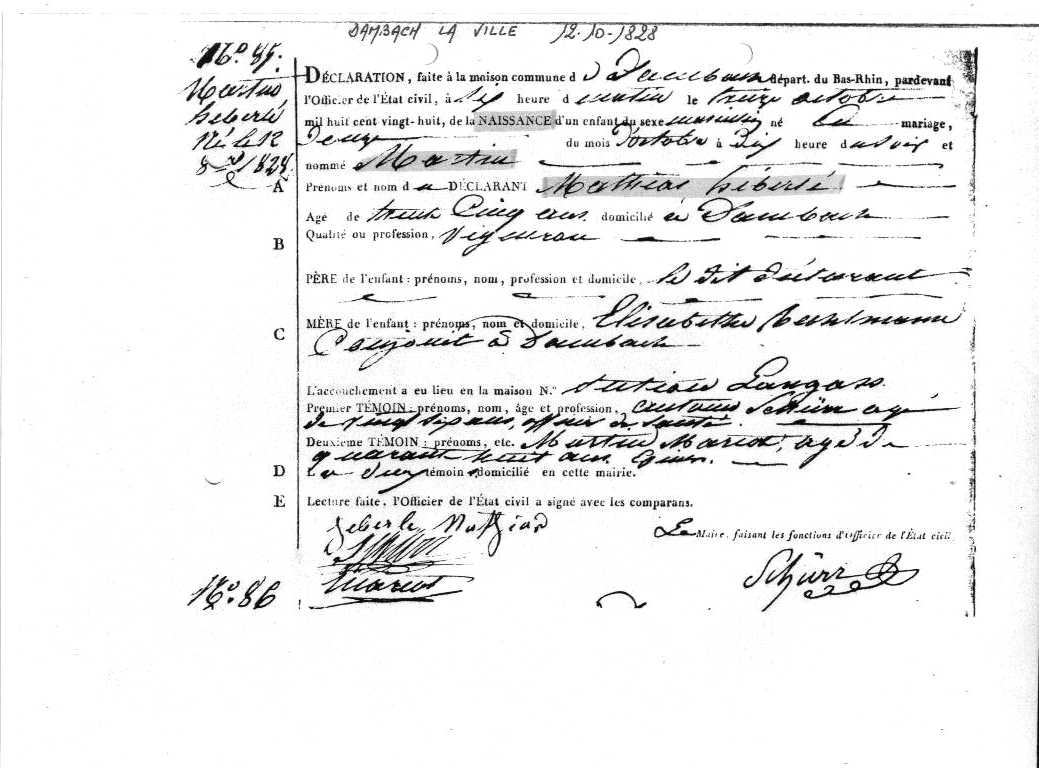 DAMBACH LA VILLE 12-10-1828
No. 85.
Martin
Geberlé
Né le 12
8bre 1828
DÉCLARATION, faite à la maison commune d e Dambach départ. du Bas-Rhin, pardevant
l'Officier de l'État civil, à dix heure d u matin le treize octobre
mil huit cent vingt-huit, de la NAISSANCE d'un enfant du sexe masculin né en mariage,
le douze du mois d'octobre à dix heure du soir et
nommé Martin
A Prénoms et nom d u DÉCLARANT Mathias Géberlé
Agé de trente Cinq ans domicilié à Dambach
B Qualité ou profession, Vigneron
PÈRE de l'enfant : prénoms, nom, profession et domicile, le dit déclarant
C MÈRE de l'enfant : prénoms, nom et domicile, Elisabethe
Conjoint à Dambach
L'accouchement a eu lieu en la maison N.º
Premier TÉMOIN : prénoms, nom, âge et profession, Antoine Schürr agé
de vingt six ans, officier de santé.
Deuxième TÉMOIN : prénoms, etc. Martin Mariot, agé de
quarante ans
D témoin domicilié en cette mairie.
E Lecture faite, l'Officier de l'État civil a signé avec les comparans.
Geberle Mathias
Le Maire, faisant les fonctions d'Officier de l'État civil.
Schürr
Mariot
Schürr
No. 86